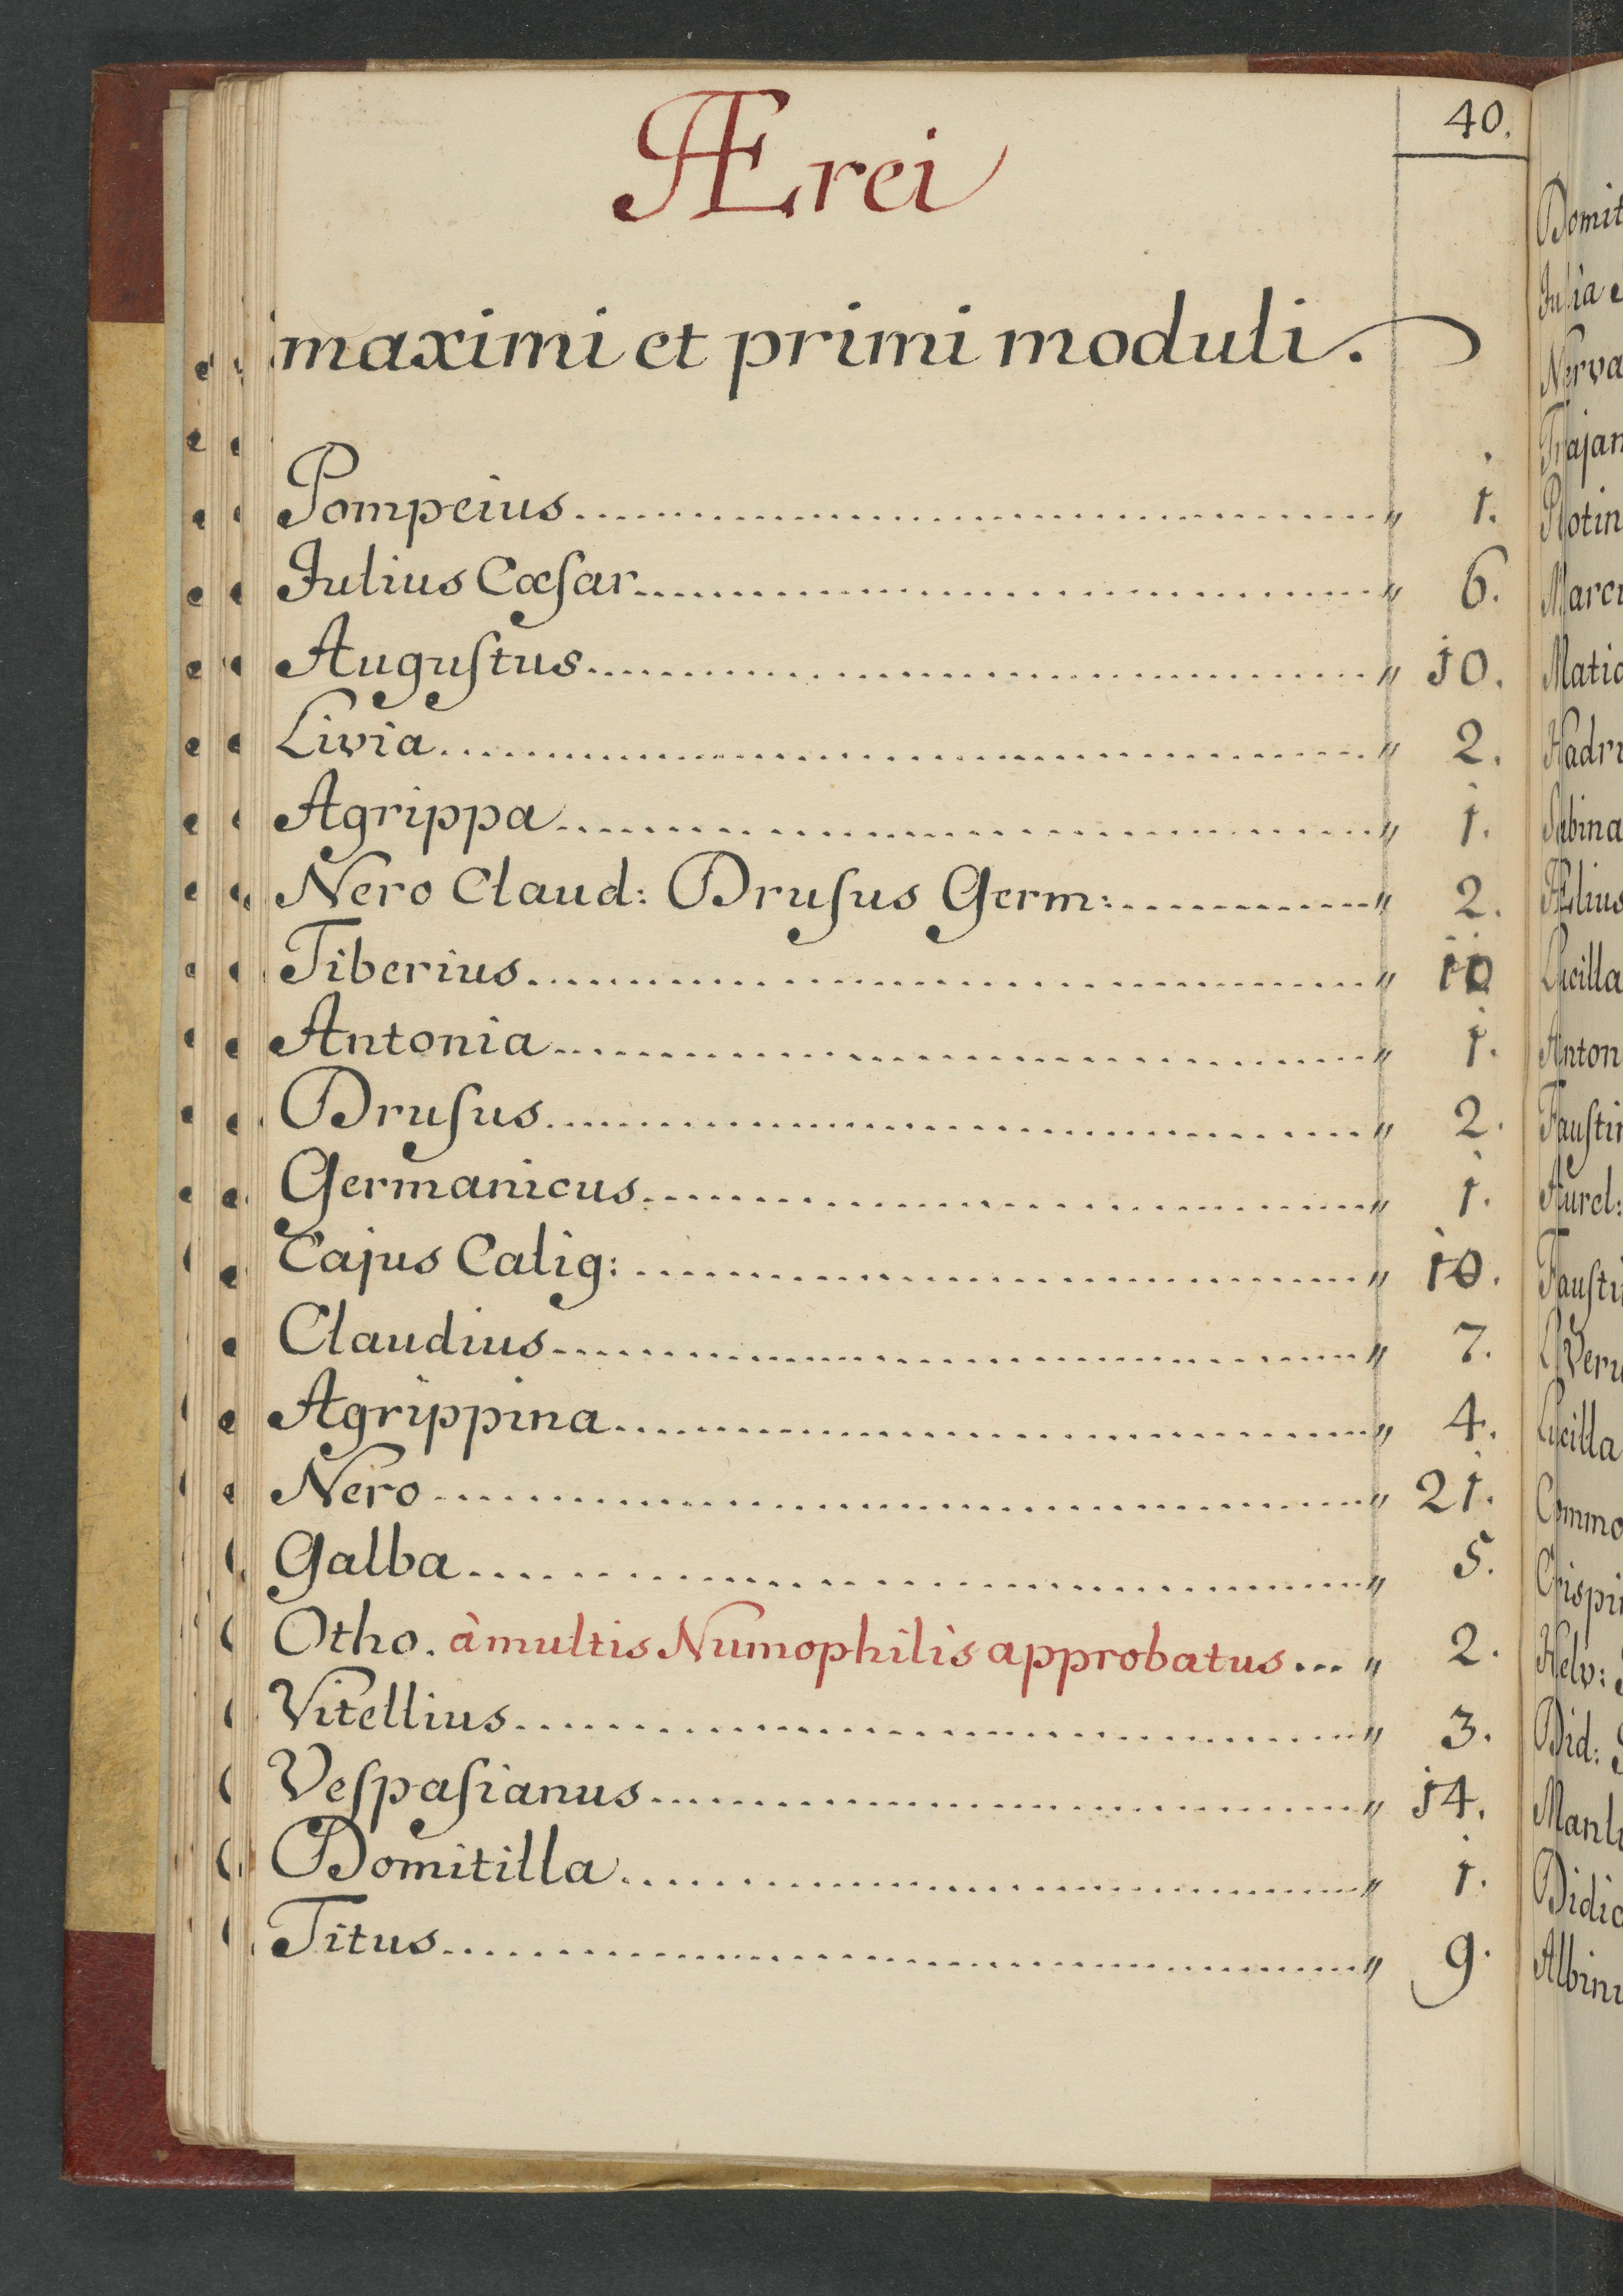 40.
Ærei
maximi et primi moduli.
Pompeius 〃 1.
Julius Cæſar 〃 6.
Auguſtus 〃 10.
Livia 〃 2.
Agrippa 〃 1.
Nero Claud: Druſus Germ: 〃 2.
Tiberius 〃
Antonia 〃 1.
Druſus 〃 2.
Germanicus 〃 1.
Cajus Calig: 〃 10.
Claudius 〃 7.
Agrippina 〃 4.
Nero 〃 21.
Galba 〃 5.
Otho. à multis Numophilis approbatus ... 〃 2.
Vitellius 〃 3.
Veſpaſianus 〃 14.
Domitilla 〃 1.
Titus 〃 9.
Domit
Julia
Nerva
Trajan
Plotin
Marci
Matid
Hadri
Sabina
Ælius
Lucilla
Anton
Fauſtin
Aurel:
Fauſti
L Veru
Lucilla
Commo
Criſpi
Helv:
Did:
Manl
Didi
Albin